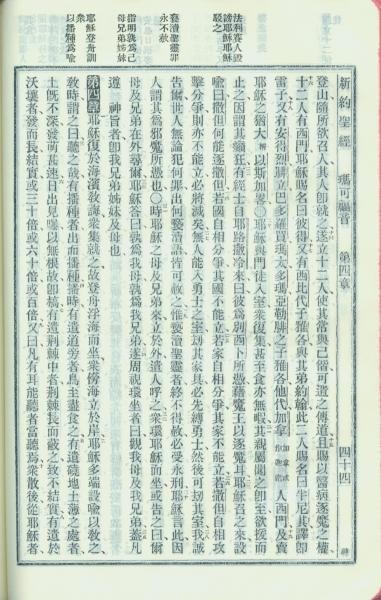 新約聖經　瑪可福音　第四章　四十四
法利賽人毀
謗耶穌耶穌
駁之
褻瀆聖靈罪
永不赦
指明孰爲己
母兄弟姊妹
耶穌登舟訓
衆
以播種爲喻
登山隨所欲召人其人卽就之遂立十二人使其常與己偕可遣之傳道且賜以醫病逐魔之權
十二人有西門耶穌賜名曰彼得又有西比代子雅各與其弟約翰此二人賜名曰半尼其譯卽
雷子又有安得烈腓立巴多羅買瑪太多瑪亞勒腓之子雅各他代加拿人西門及賣
耶穌之猶大以斯加畧○耶穌與門徒入室衆復集甚至食亦無暇耶穌親屬聞之卽至欲援而
止之因謂其癲狂有經士自耶路撒冷來曰彼爲別西卜所憑藉魔王以逐魔耳耶穌召之來設
喻曰撒但何能逐撒但若國自相分爭其國不能立若家自相分爭其家不能立若撒但自相攻
擊分爭則亦不能立必將滅矣無人能入勇士之室刼其家具必先縛勇士然後可刼其室我誠
告爾世人無論犯何罪出何褻瀆語皆可赦之惟褻瀆聖靈者終不得赦必受永刑耶穌言此因
人謂其爲邪魔所憑也○時耶穌之母及兄弟來立於外遣人呼之衆環耶穌而坐或告之曰爾
母及兄弟在外尋爾耶穌答曰孰爲我母孰爲我兄弟遂周視環坐者曰觀我母及我兄弟蓋凡
遵　神旨者卽我兄弟姊妹及母也
第四章耶穌復於海濱敎誨衆集就之故登舟浮海而坐衆傍海立於岸耶穌多端設喻以敎之
敎時謂之曰聽之哉有播種者出而播種播時有遺道旁者鳥至盡食之有遺磽地土薄之處者
土旣不深發萌甚速日出見曝以無根故卽槁有遺荊棘中者荊棘長而蔽之致不結實有遺於
沃壤者發而長結實或三十倍或六十倍或百倍又曰凡有耳能聽者當聽焉衆散後從耶穌者